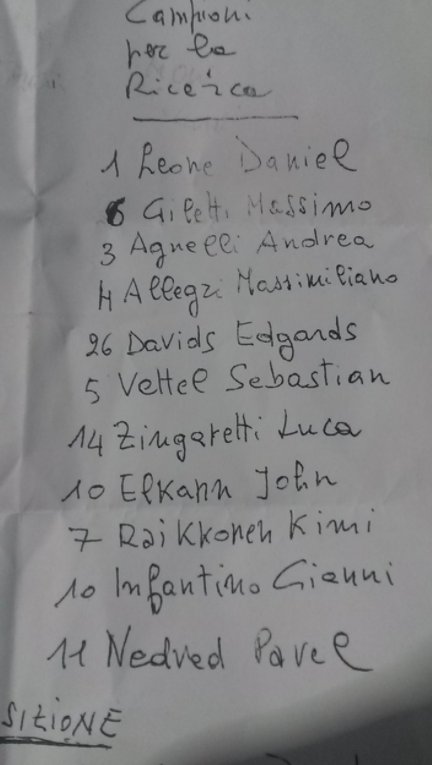 Campioni
per la
Ricerca
1 Leone Daniel
6 Giletti Massimo
3 Agnelli Andrea
4 Allegri Massimiliano
26 Davids Edgards
5 Vettel Sebastian
14 Zingaretti Luca
10 Elkann John
7 Raikkonen Kimi
10 Infantino Gianni
11 Nedved Pavel
SIZIONE